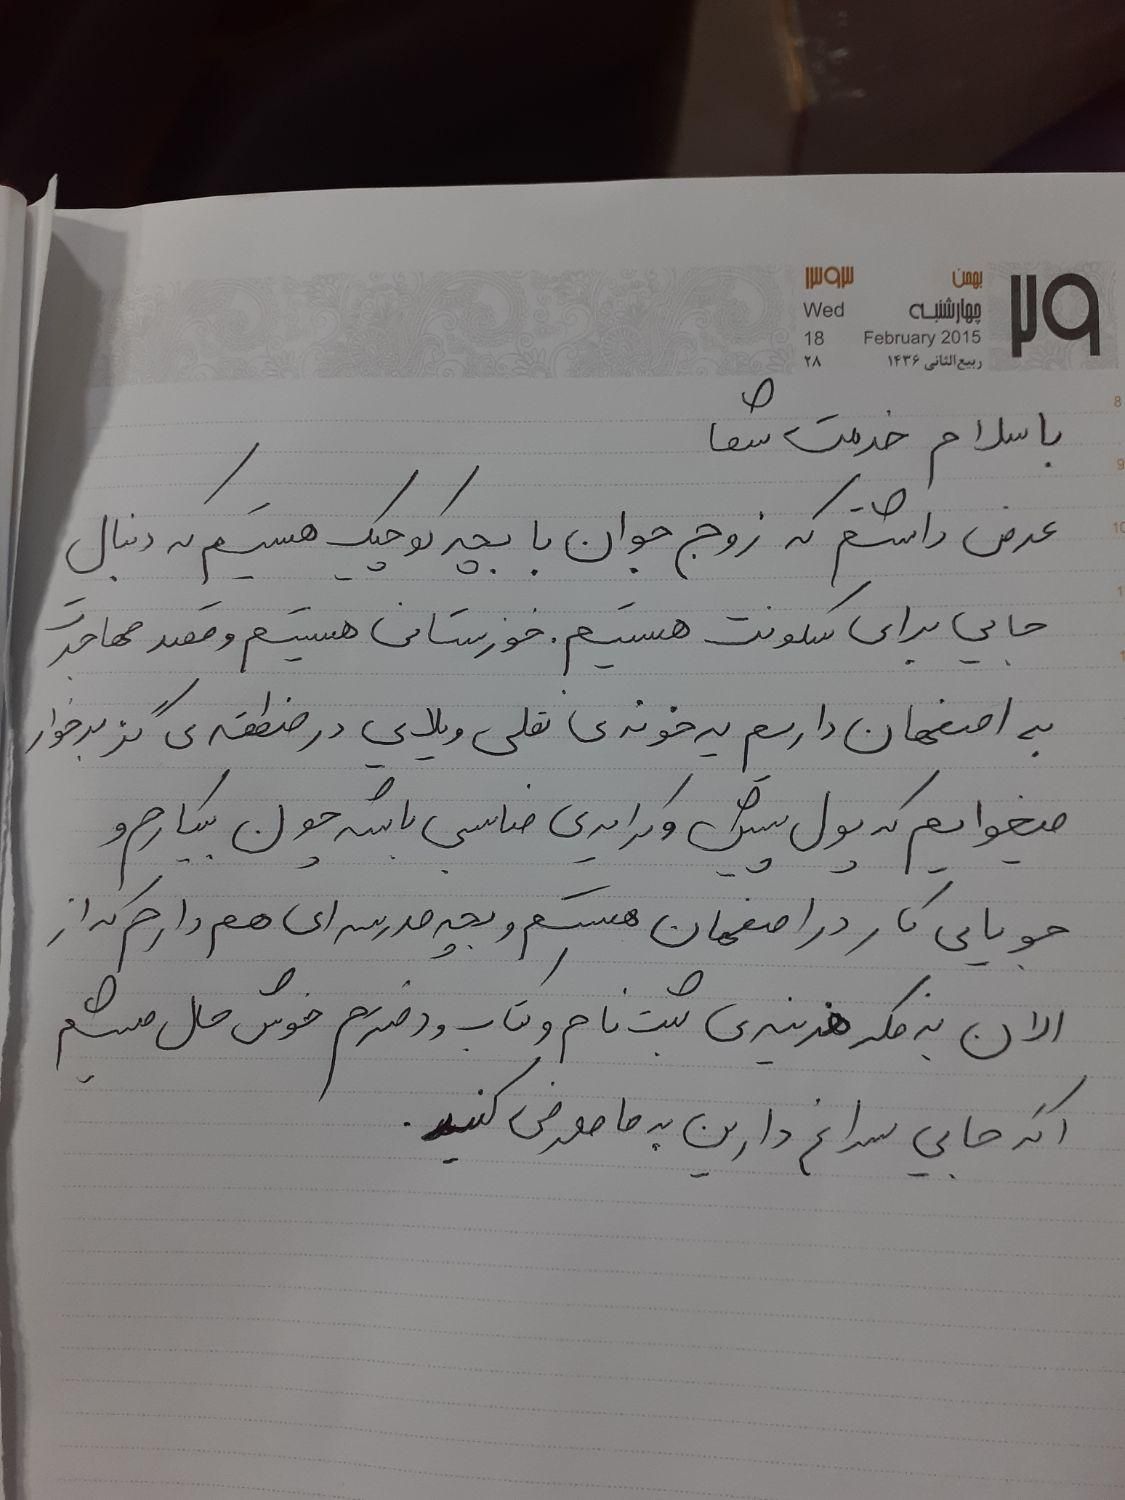 بهمن ۱۳۹۳
۲۹
چهارشنبه Wed
18 February 2015
۲۸ ربیع‌الثانی ۱۴۳۶
8
با سلام خدمت شما
9
عرض داشتم که زوج جوان با بچه کوچیک هستیم که دنبال
10
جایی برای سکونت هستیم. خوزستانی هستیم و قصد مهاجرت
به اصفهان داریم یه خونه ی نقلی ویلایی در منطقه ی گز برخوار
میخوایم که پول پیش و کرایه ی مناسبی باشه چون بیکارم و
جویایی کار در اصفهان هستم و بچه مدرسه ای هم دارم که از
الان به فکر هزینه ی ثبت نام و کتاب و دفترم خوش حال میشم
اگه جایی سراغ دارین به ما معرفی کنید.